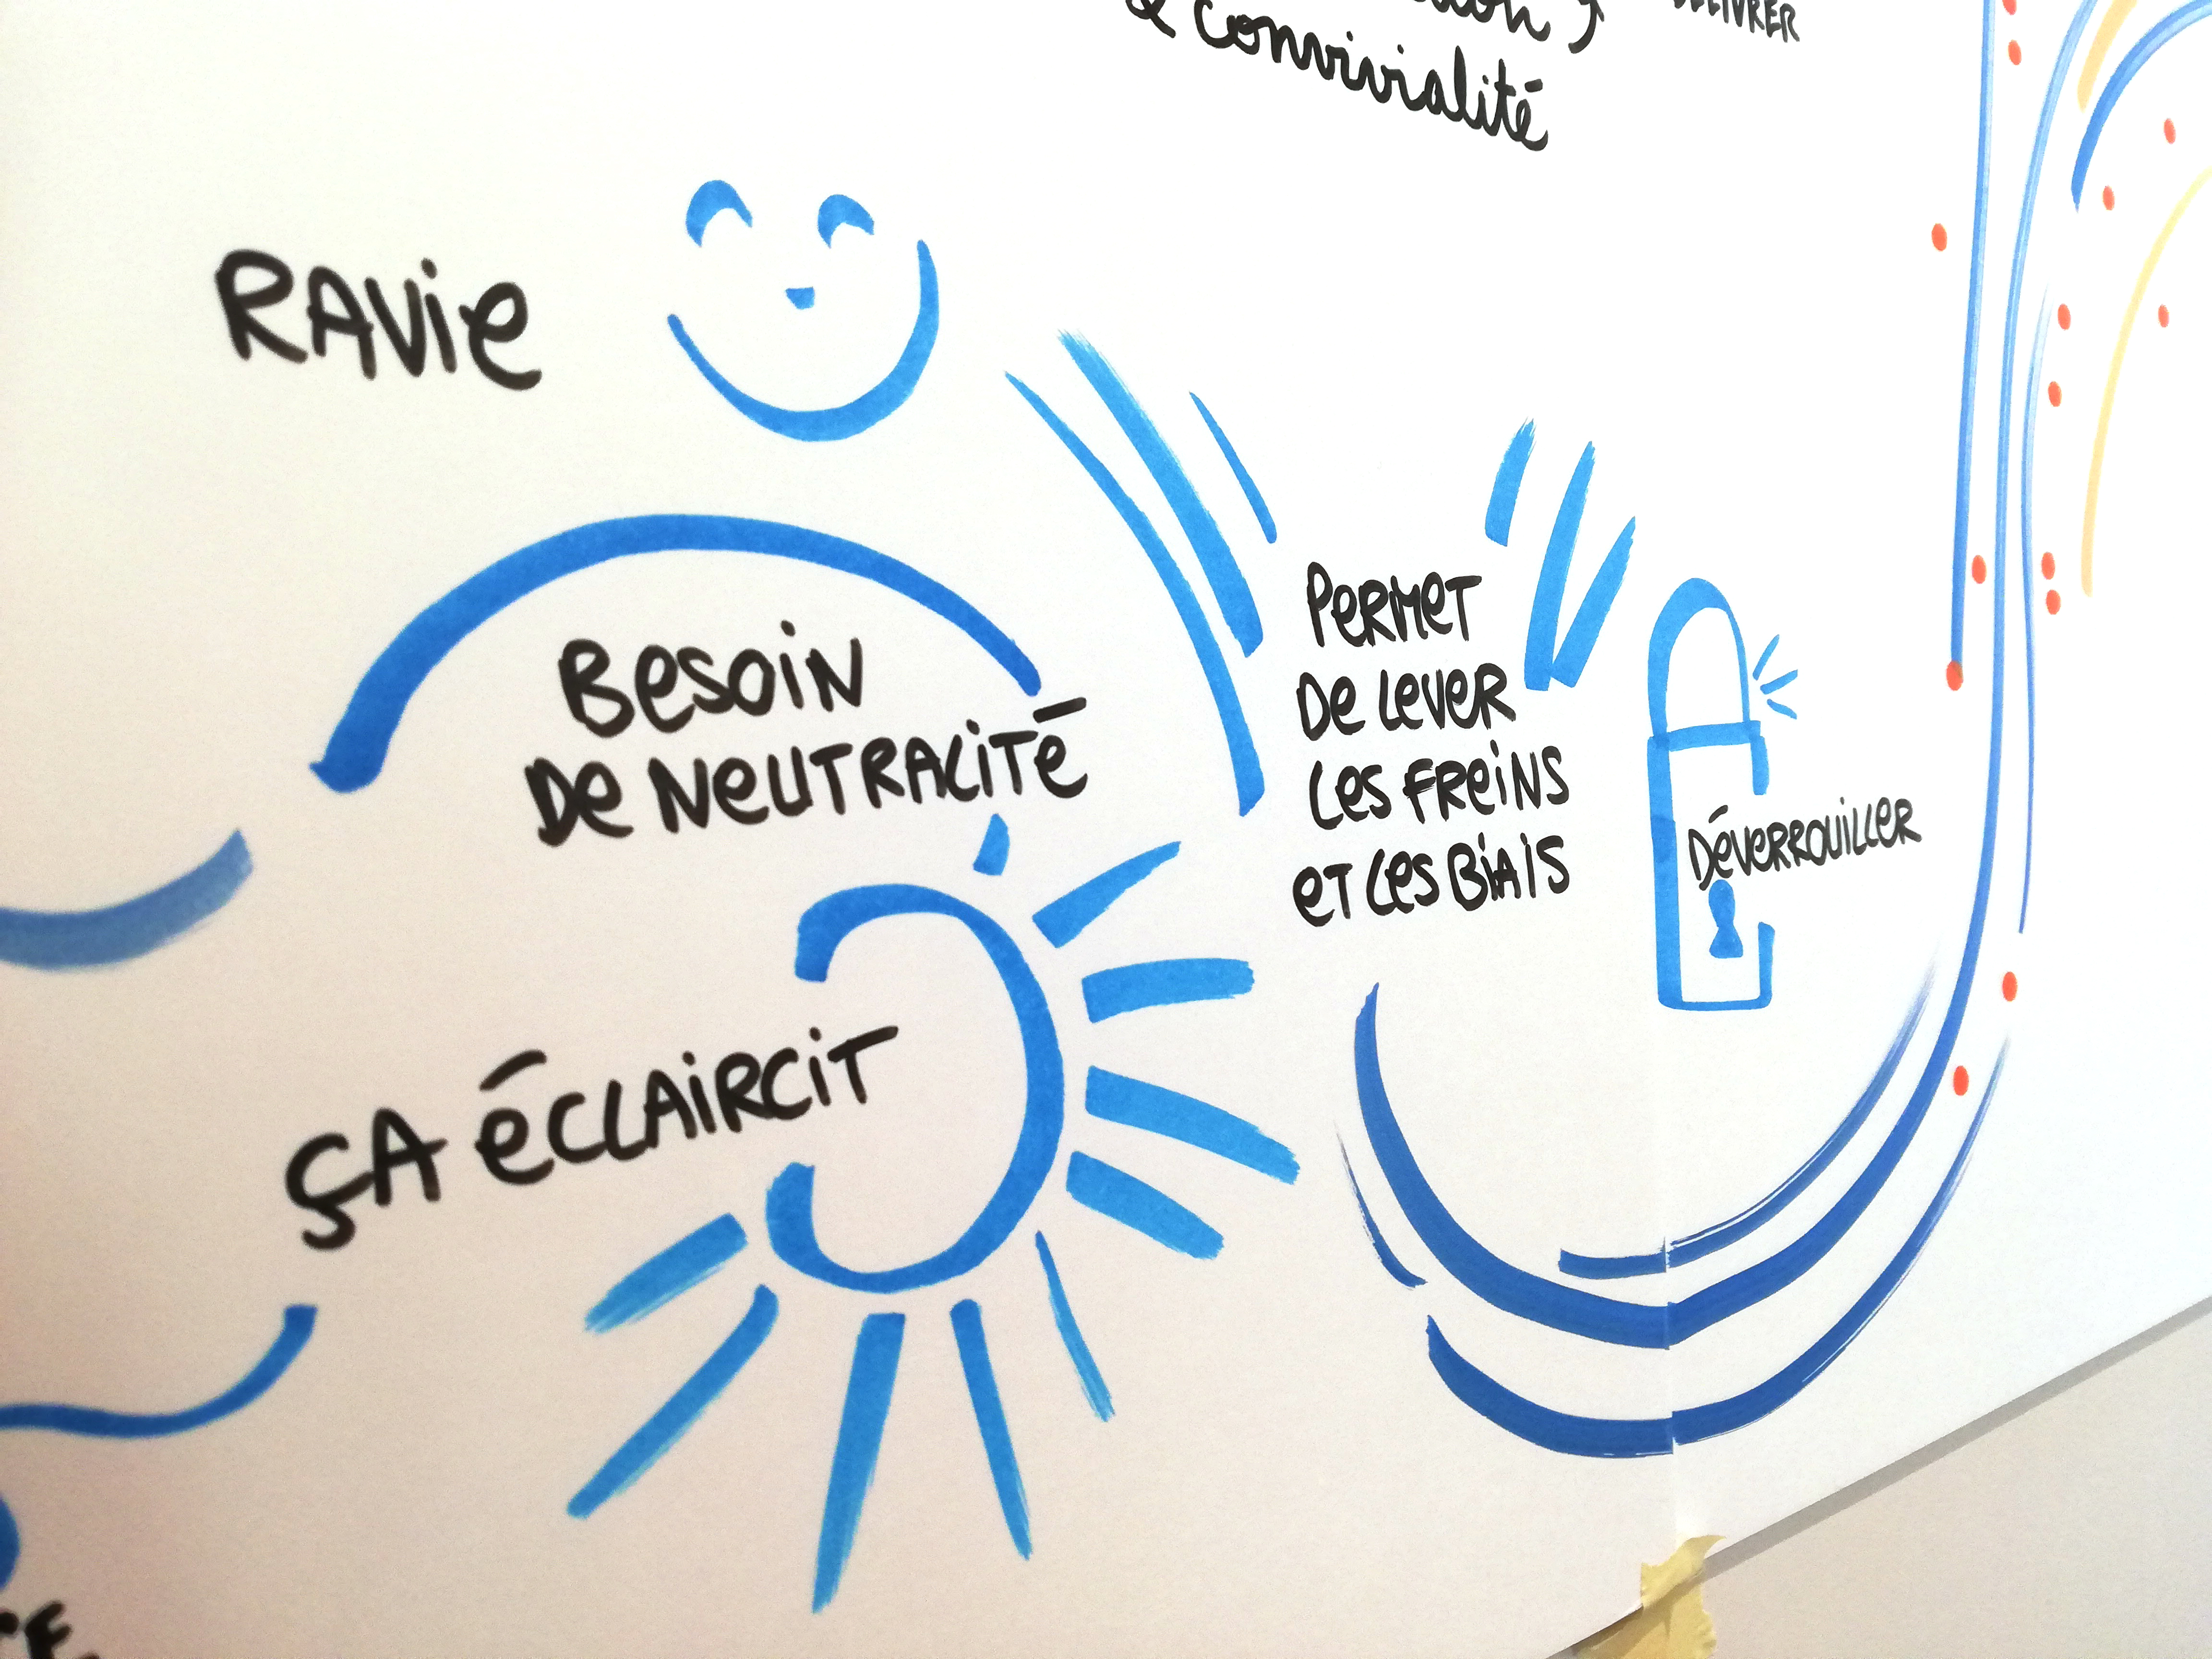 & convivialité
RAVie
Besoin
De NeUTRALiTé
PeRMeT
De LeveR
Les FReiNS
eT Les BiAiS
DéveRROUiLLeR
ÇA éCLAiRCiT